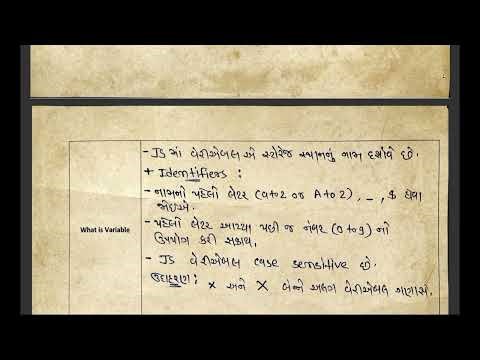 What is Variable
- JS માં વેરીએબલ એ સ્ટોરેજ સ્થાનનું નામ દર્શાવે છે.
+ Identifiers :
- નામનો પહેલો લેટર (a to z or A to Z), _, $ હોવા
જોઈએ.
- પહેલો લેટર આવ્યા પછી જ નંબર (0 to 9) નો
ઉપયોગ કરી શકાય.
- JS વેરીએબલ case sensitive છે.
ઉદાહરણ: x અને X બન્ને અલગ વેરીએબલ ગણાશે.